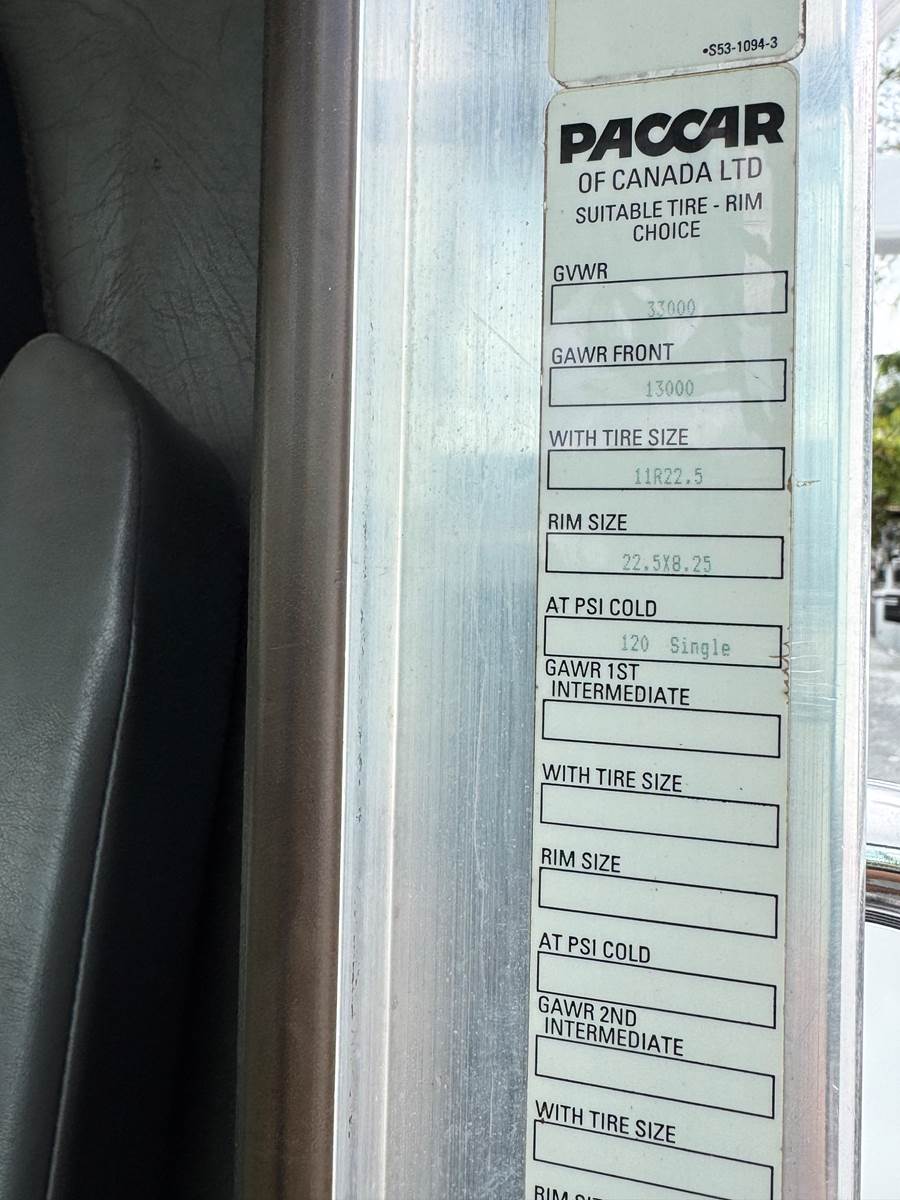 •S53-1094-3
PACCAR
OF CANADA LTD
SUITABLE TIRE - RIM
CHOICE
GVWR
33000
GAWR FRONT
13000
WITH TIRE SIZE
11R22.5
RIM SIZE
22.5X8.25
AT PSI COLD
120 Single
GAWR 1ST
INTERMEDIATE
WITH TIRE SIZE
RIM SIZE
AT PSI COLD
GAWR 2ND
INTERMEDIATE
WITH TIRE SIZE
RIM